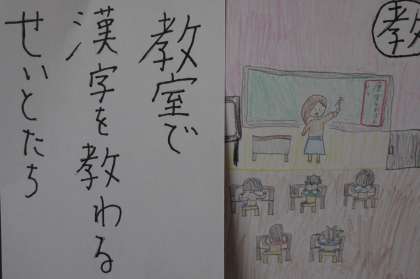 教室で
漢字を教わる
せいとたち
教